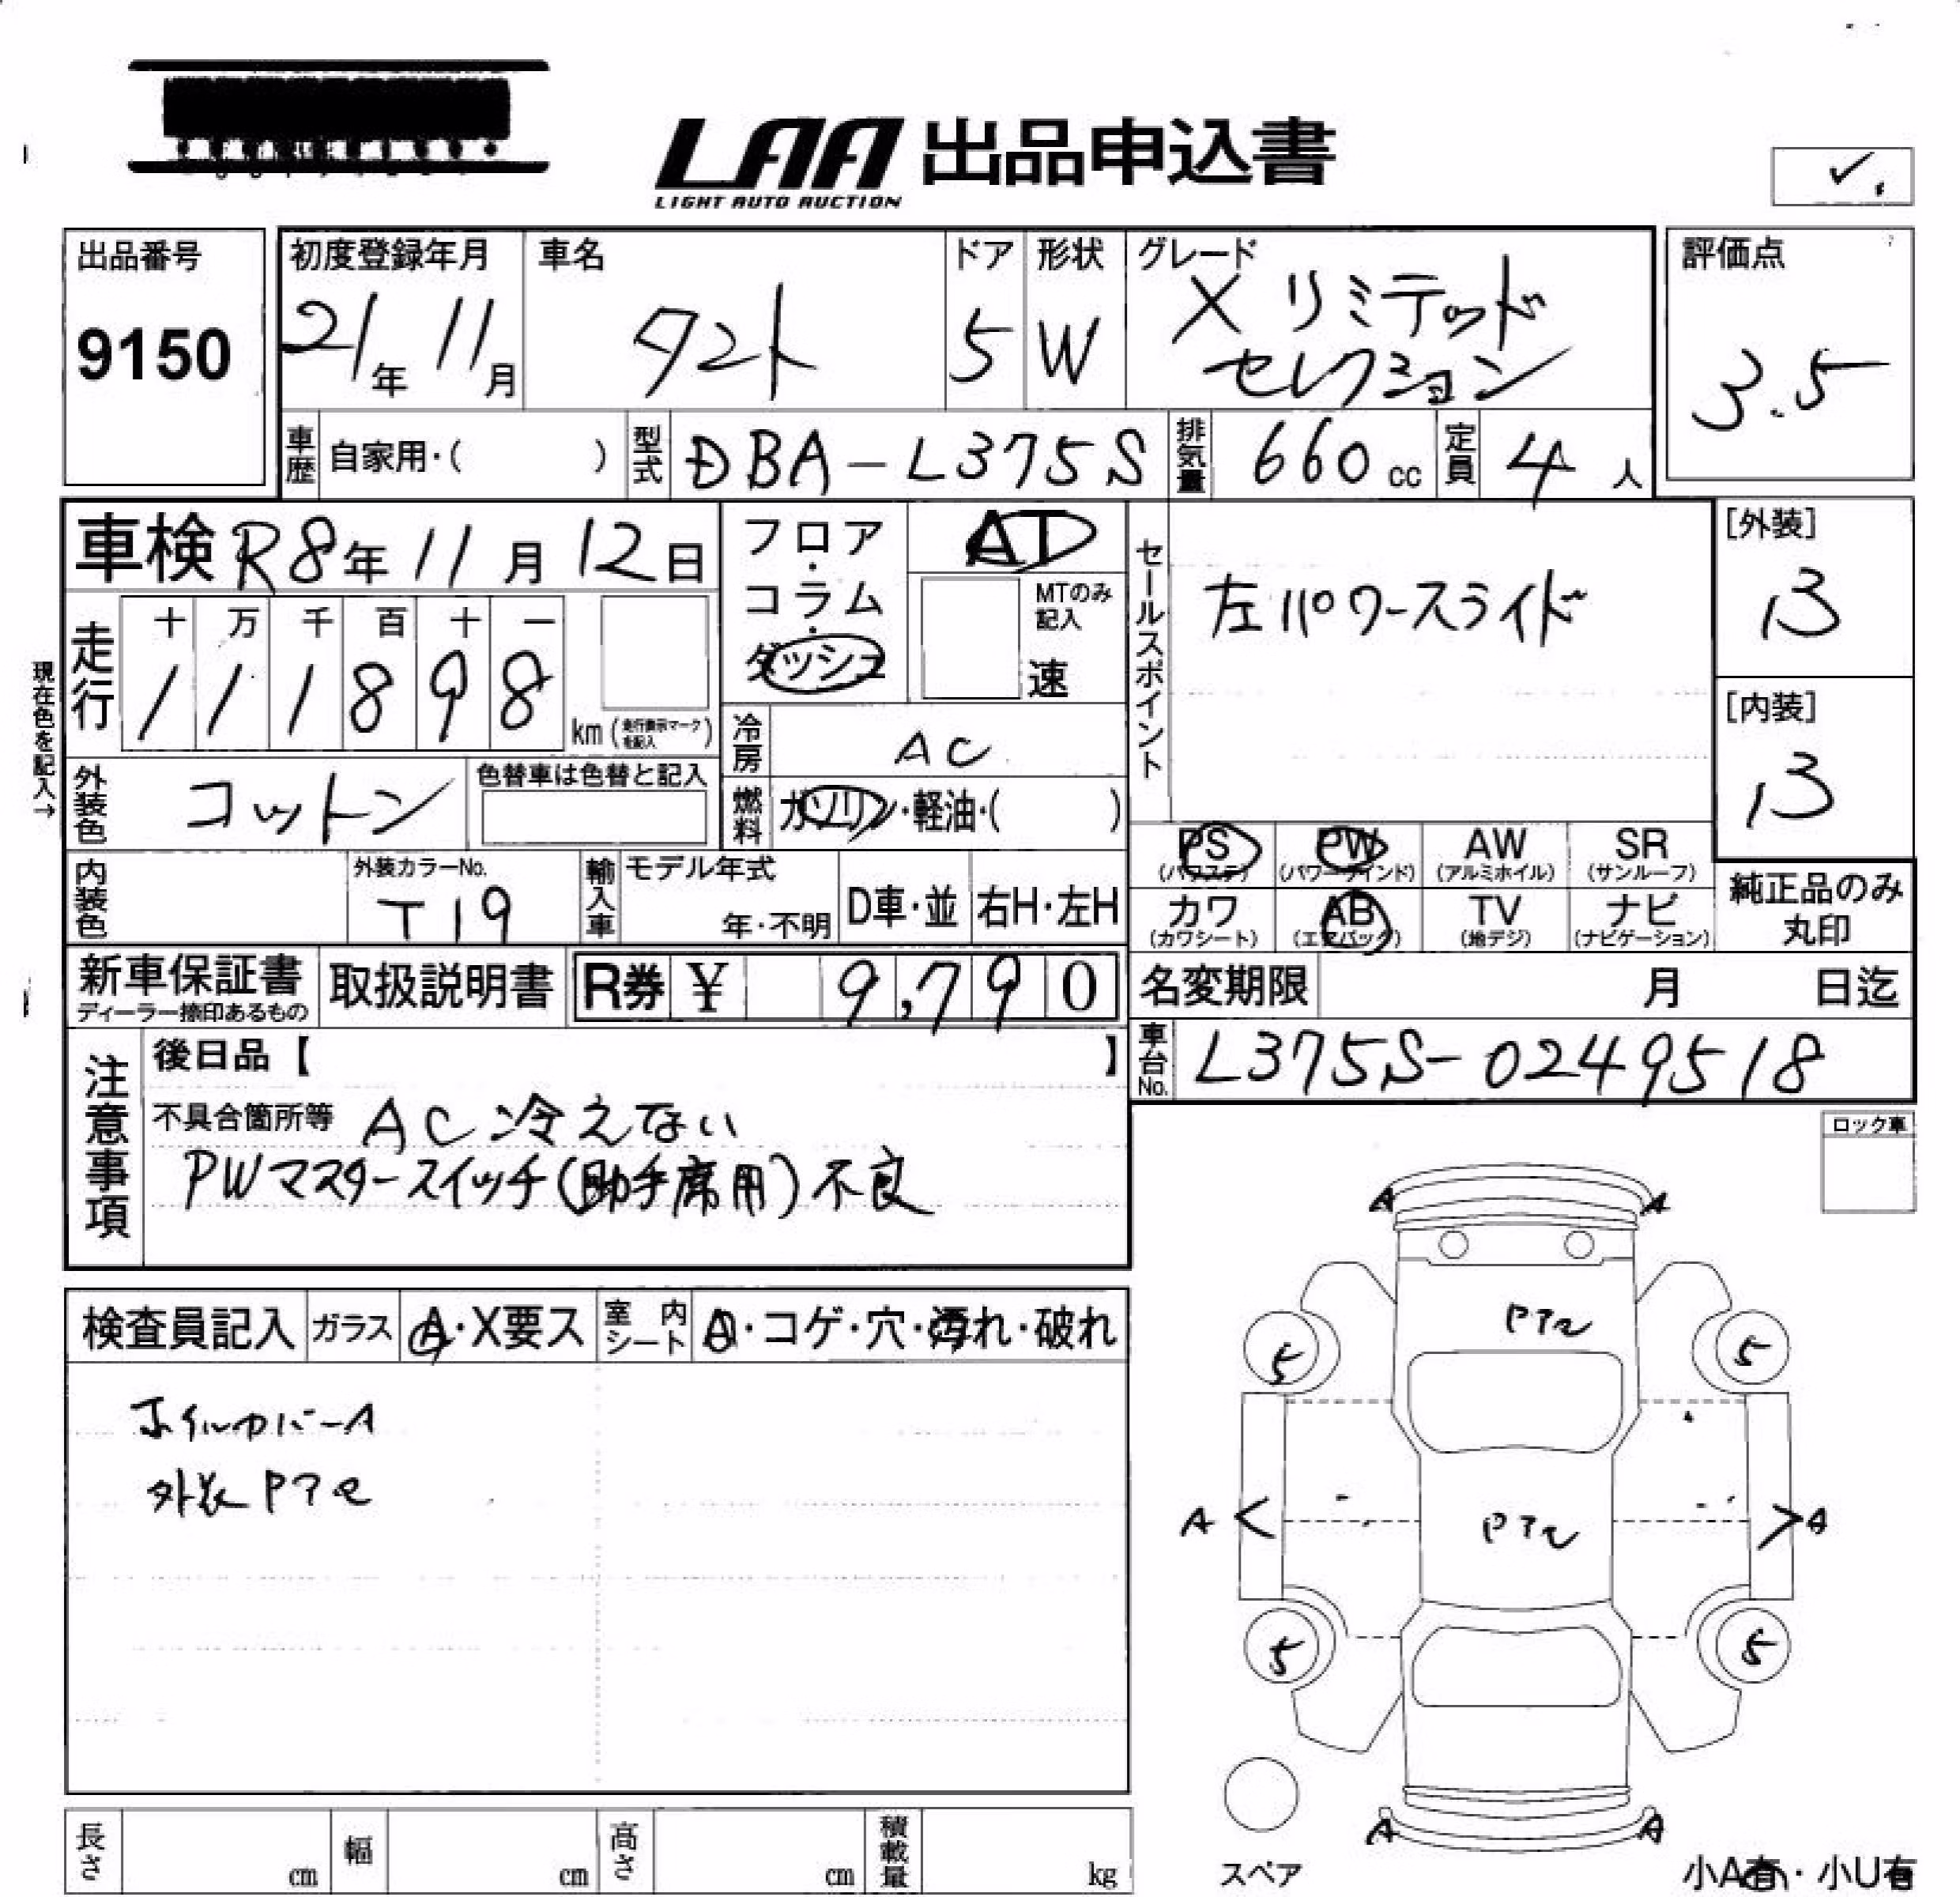 LAA 出品申込書
LIGHT AUTO AUCTION
出品番号
9150
初度登録年月
21年 11月
車名
タント
ドア
5
形状
W
グレード
X リミテッド
セレクション
評価点
3.5
車歴 自家用・( )
型式 DBA-L375S
排気量 660 cc
定員 4 人
車検 R8年 11月 12日
フロア・
コラム・
ダッシュ
AT
MTのみ
記入
速
セールスポイント
左パワースライド
[外装]
B
[内装]
B
現在色を記入→
走行
十 万 千 百 十 一
1 1 1 8 9 8
km (走行表示マークを記入)
冷房 AC
燃料 ガソリン・軽油・( )
外装色 コットン
色替車は色替と記入
内装色
外装カラーNo.
T19
輸入車
モデル年式
年・不明
D車・並
右H・左H
PS
(パワステ)
PW
(パワーウインド)
AW
(アルミホイル)
SR
(サンルーフ)
カワ
(カワシート)
AB
(エアバック)
TV
(地デジ)
ナビ
(ナビゲーション)
純正品のみ
丸印
新車保証書
ディーラー捺印あるもの
取扱説明書
R券 ¥ 9,790
名変期限 月 日迄
車台No. L375S-0249518
注意事項
後日品【 】
不具合箇所等 AC冷えない
PWマスタースイッチ(助手席用)不良
ロック車
検査員記入
ガラス A・X要ス
室内シート
コゲ・穴・汚れ・破れ
ホイルカバーA
外装Pアセ
A A
Pアセ
5 5
A A
Pアセ
5 5
A A
スペア
小A有・小U有
長さ cm
幅 cm
高さ cm
積載量 kg